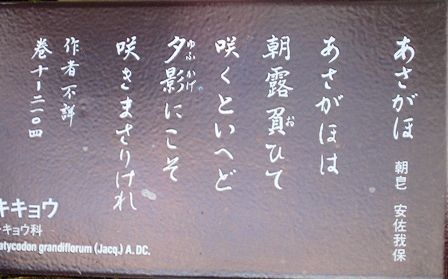 あさがほ 朝皃 安佐我保
あさがほは
朝露負ひて
咲くといへど
夕影にこそ
咲きまさりけれ
作者不詳
巻十-二一〇四
キキョウ
キキョウ科
atycodon grandiflorum (Jacq.) A. DC.